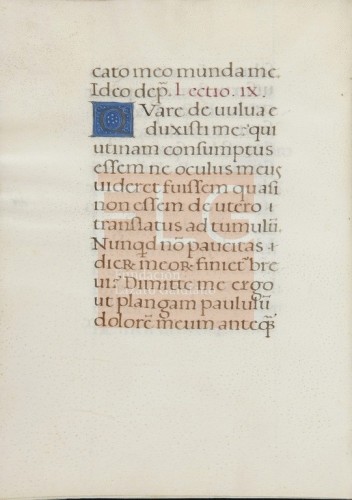 cato meo munda me.
Ideo dep̄. Lectio. IX.
QVare de uulua e
duxisti me: qui
utinam consumptus
essem ne oculus meus
uideret fuissem quasi
non essem de utero i
translatus ad tumulū.
Nunqd nō paucitas i
dierᷣ meorᷣ finiet᷑ bre
ui? Dimitte me ergo
ut plangam paululū
dolorē meum anteq̄
FLG
fundación
lázaro galdiano